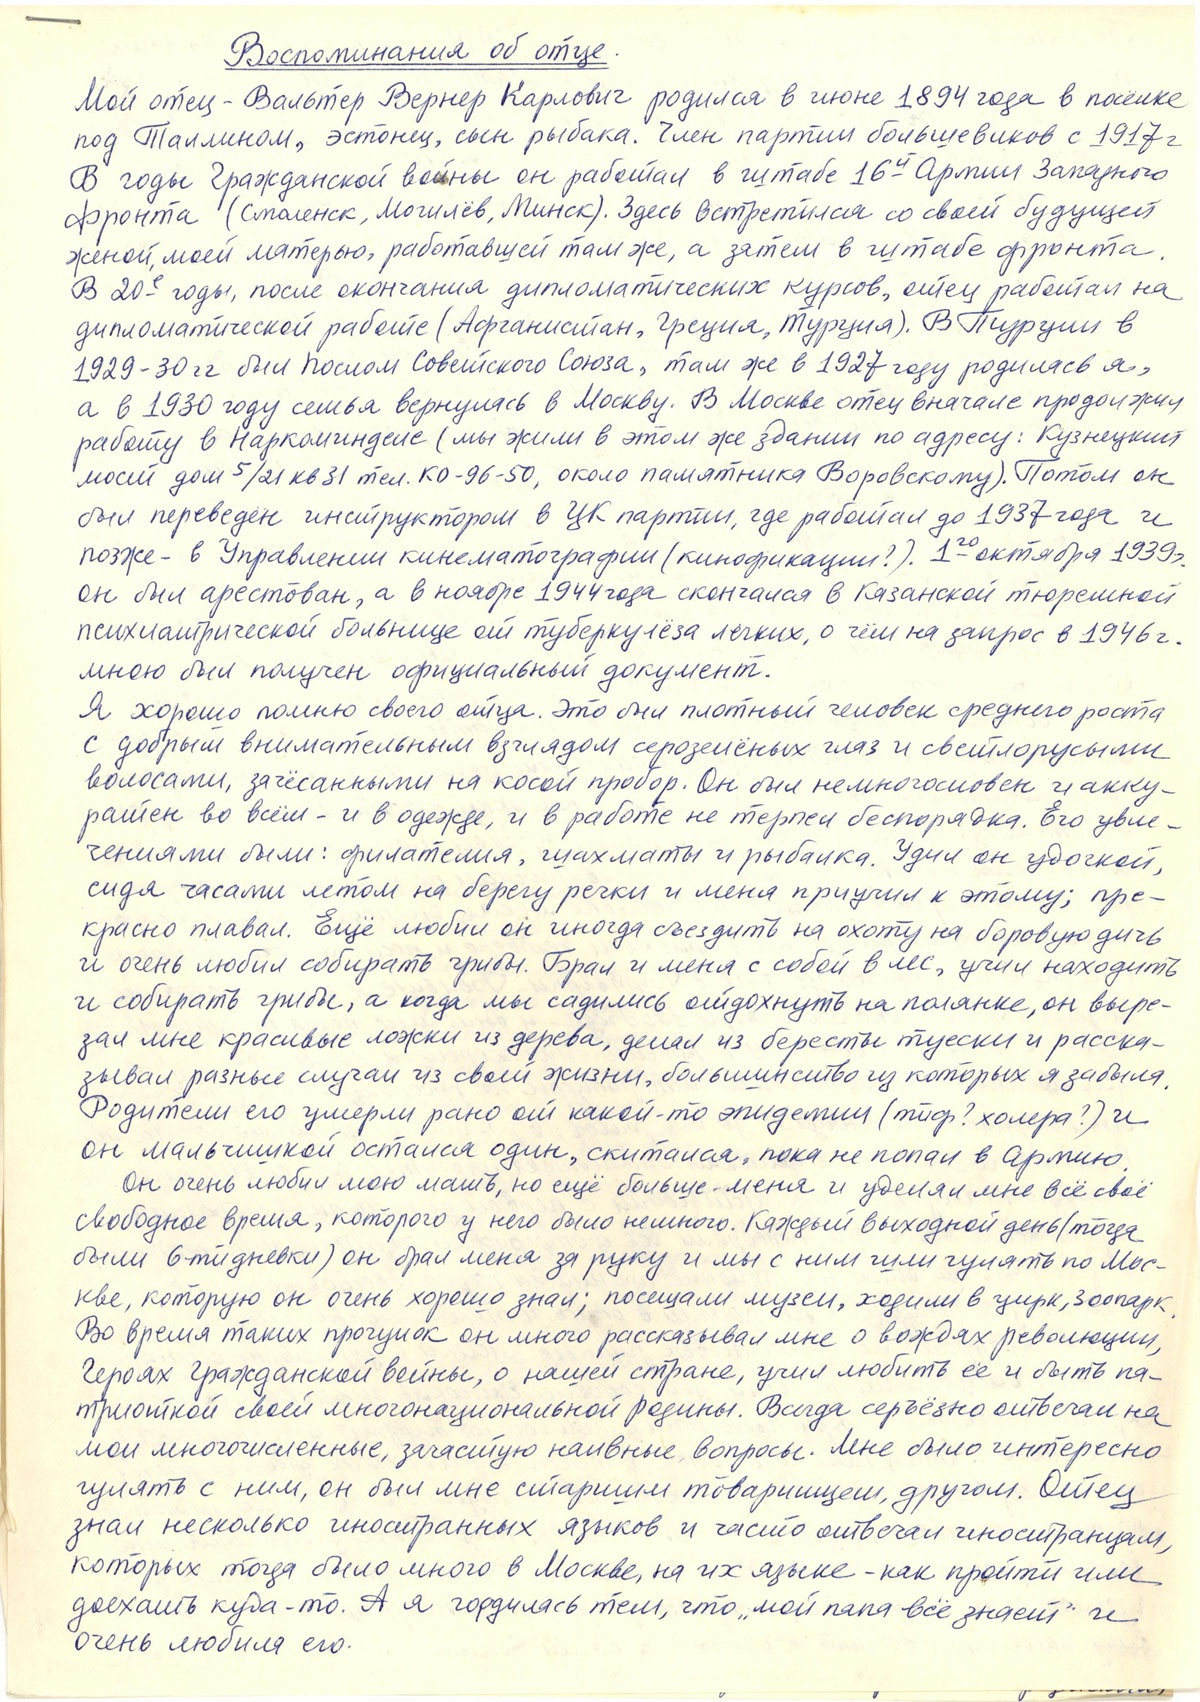 Воспоминания об отце.
Мой отец - Вальтер Вернер Карлович родился в июне 1894 года в посёлке
под Таллином, эстонец, сын рыбака. Член партии большевиков с 1917 г
В годы Гражданской войны он работал в штабе 16й Армии Западного
фронта (Смоленск, Могилёв, Минск). Здесь встретился со своей будущей
женой, моей матерью, работавшей там же, а затем в штабе фронта.
В 20е годы, после окончания дипломатических курсов, отец работал на
дипломатической работе (Афганистан, Греция, Турция). В Турции в
1929-30 гг был Послом Советского Союза, там же в 1927 году родилась я,
а в 1930 году семья вернулась в Москву. В Москве отец вначале продолжил
работу в Наркоминделе (мы жили в этом же здании по адресу: Кузнецкий
мост дом 5/21 кв 31 тел. К0-96-50, около памятника Воровскому). Потом он
был переведён инструктором в ЦК партии, где работал до 1937 года и
позже - в Управлении кинематографии (кинофикации?). 1го октября 1939г.
он был арестован, а в ноябре 1944 года скончался в Казанской тюремной
психиатрической больнице от туберкулёза лёгких, о чём на запрос в 1946 г.
мною был получен официальный документ.
Я хорошо помню своего отца. Это был плотный человек среднего роста
с добрым внимательным взглядом серозелёных глаз и светлорусыми
волосами, зачёсанными на косой пробор. Он был немногословен и акку-
ратен во всём - и в одежде, и в работе не терпел беспорядка. Его увле-
чениями были: филателия, шахматы и рыбалка. Удил он удочкой,
сидя часами летом на берегу речки и меня приучил к этому; пре-
красно плавал. Ещё любил он иногда съездить на охоту на боровую дичь
и очень любил собирать грибы. Брал и меня с собой в лес, учил находить
и собирать грибы, а когда мы садились отдохнуть на полянке, он выре-
зал мне красивые ложки из дерева, делал из бересты туески и расска-
зывал разные случаи из своей жизни, большинство из которых я забыла.
Родители его умерли рано от какой-то эпидемии (тиф? холера?) и
он мальчишкой остался один, скитался, пока не попал в Армию.
Он очень любил мою мать, но ещё больше - меня и уделял мне всё своё
свободное время, которого у него было немного. Каждый выходной день (тогда
были 6-тидневки) он брал меня за руку и мы с ним шли гулять по Мос-
кве, которую он очень хорошо знал; посещали музеи, ходили в цирк, зоопарк.
Во время таких прогулок он много рассказывал мне о вождях революции,
Героях Гражданской войны, о нашей стране, учил любить её и быть па-
триоткой своей многонациональной Родины. Всегда серьёзно отвечал на
мои многочисленные, зачастую наивные вопросы. Мне было интересно
гулять с ним, он был мне старшим товарищем, другом. Отец
знал несколько иностранных языков и часто отвечал иностранцам,
которых тогда было много в Москве, на их языке - как пройти или
доехать куда-то. А я гордилась тем, что „мой папа всё знает" и
очень любила его.